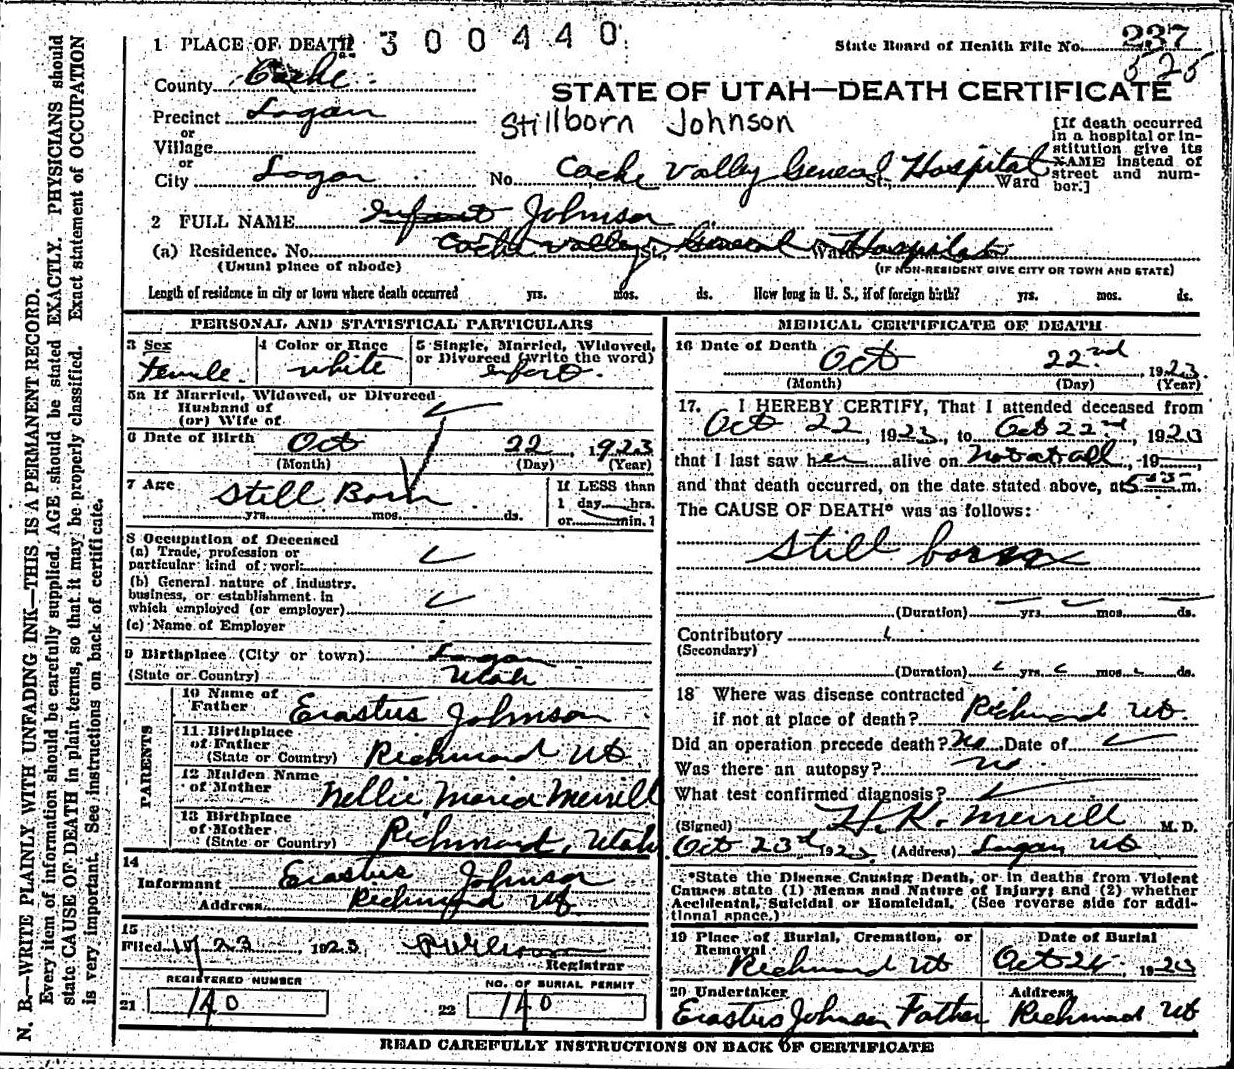 1 PLACE OF DEATH 300440 State Board of Health File No. 237
525
County Cache
STATE OF UTAH—DEATH CERTIFICATE
Precinct Logan
or
Village
or
City Logan
Stillborn Johnson
No. Cache Valley General St., Hospital Ward
[If death occurred in a hospital or institution give its NAME instead of street and number.]
2 FULL NAME Infant Johnson
(a) Residence. No. Cache Valley St., General Ward Hospital
(Usual place of abode) (IF NON-RESIDENT GIVE CITY OR TOWN AND STATE)
Length of residence in city or town where death occurred yrs. mos. ds. How long in U. S., if of foreign birth? yrs. mos. ds.
PERSONAL AND STATISTICAL PARTICULARS
3 Sex 4 Color or Race 5 Single, Married, Widowed, or Divorced (write the word)
Female. white infant.
5a If Married, Widowed, or Divorced
Husband of
(or) Wife of
6 Date of Birth Oct 22, 1923
(Month) (Day) (Year)
7 Age Still Born
yrs. mos. ds.
If LESS than
1 day hrs.
or min.?
8 Occupation of Deceased
(a) Trade, profession or
particular kind of work
(b) General nature of Industry,
business, or establishment in
which employed (or employer)
(c) Name of Employer
9 Birthplace (City or town) Logan
(State or Country) Utah
PARENTS
10 Name of
Father Erastus Johnson
11 Birthplace
of Father
(State or Country) Richmond Ut
12 Maiden Name
of Mother Nellie Maria Merrill
13 Birthplace
of Mother
(State or Country) Richmond, Utah
14
Informant Erastus Johnson
Address Richmond Ut
15
Filed 10/23, 1923
Registrar
REGISTERED NUMBER NO. OF BURIAL PERMIT
21 140 22 140
MEDICAL CERTIFICATE OF DEATH
16 Date of Death Oct 22nd, 1923.
(Month) (Day) (Year)
17. I HEREBY CERTIFY, That I attended deceased from
Oct 22, 1923, to Oct 22nd, 1923
that I last saw her alive on not at all, 19
and that death occurred, on the date stated above, at m.
The CAUSE OF DEATH* was as follows:
Still born
(Duration) yrs. mos. ds.
Contributory
(Secondary)
(Duration) yrs. mos. ds.
18 Where was disease contracted
if not at place of death? Richmond Ut.
Did an operation precede death? No Date of
Was there an autopsy? no
What test confirmed diagnosis?
(Signed) H. K. Merrill M. D.
Oct 23rd, 1923. (Address) Logan Ut
*State the Disease Causing Death, or in deaths from Violent
Causes state (1) Means and Nature of Injury; and (2) whether
Accidental, Suicidal or Homicidal. (See reverse side for additional space.)
19 Place of Burial, Cremation, or Removal Date of Burial
Richmond Ut Oct 24, 1923
20 Undertaker Address
Erastus Johnson Father Richmond Ut
READ CAREFULLY INSTRUCTIONS ON BACK OF CERTIFICATE
N. B.—WRITE PLAINLY WITH UNFADING INK—THIS IS A PERMANENT RECORD.
Every item of information should be carefully supplied. AGE should be stated EXACTLY. PHYSICIANS should
state CAUSE OF DEATH in plain terms, so that it may be properly classified. Exact statement of OCCUPATION
is very important. See instructions on back of certificate.